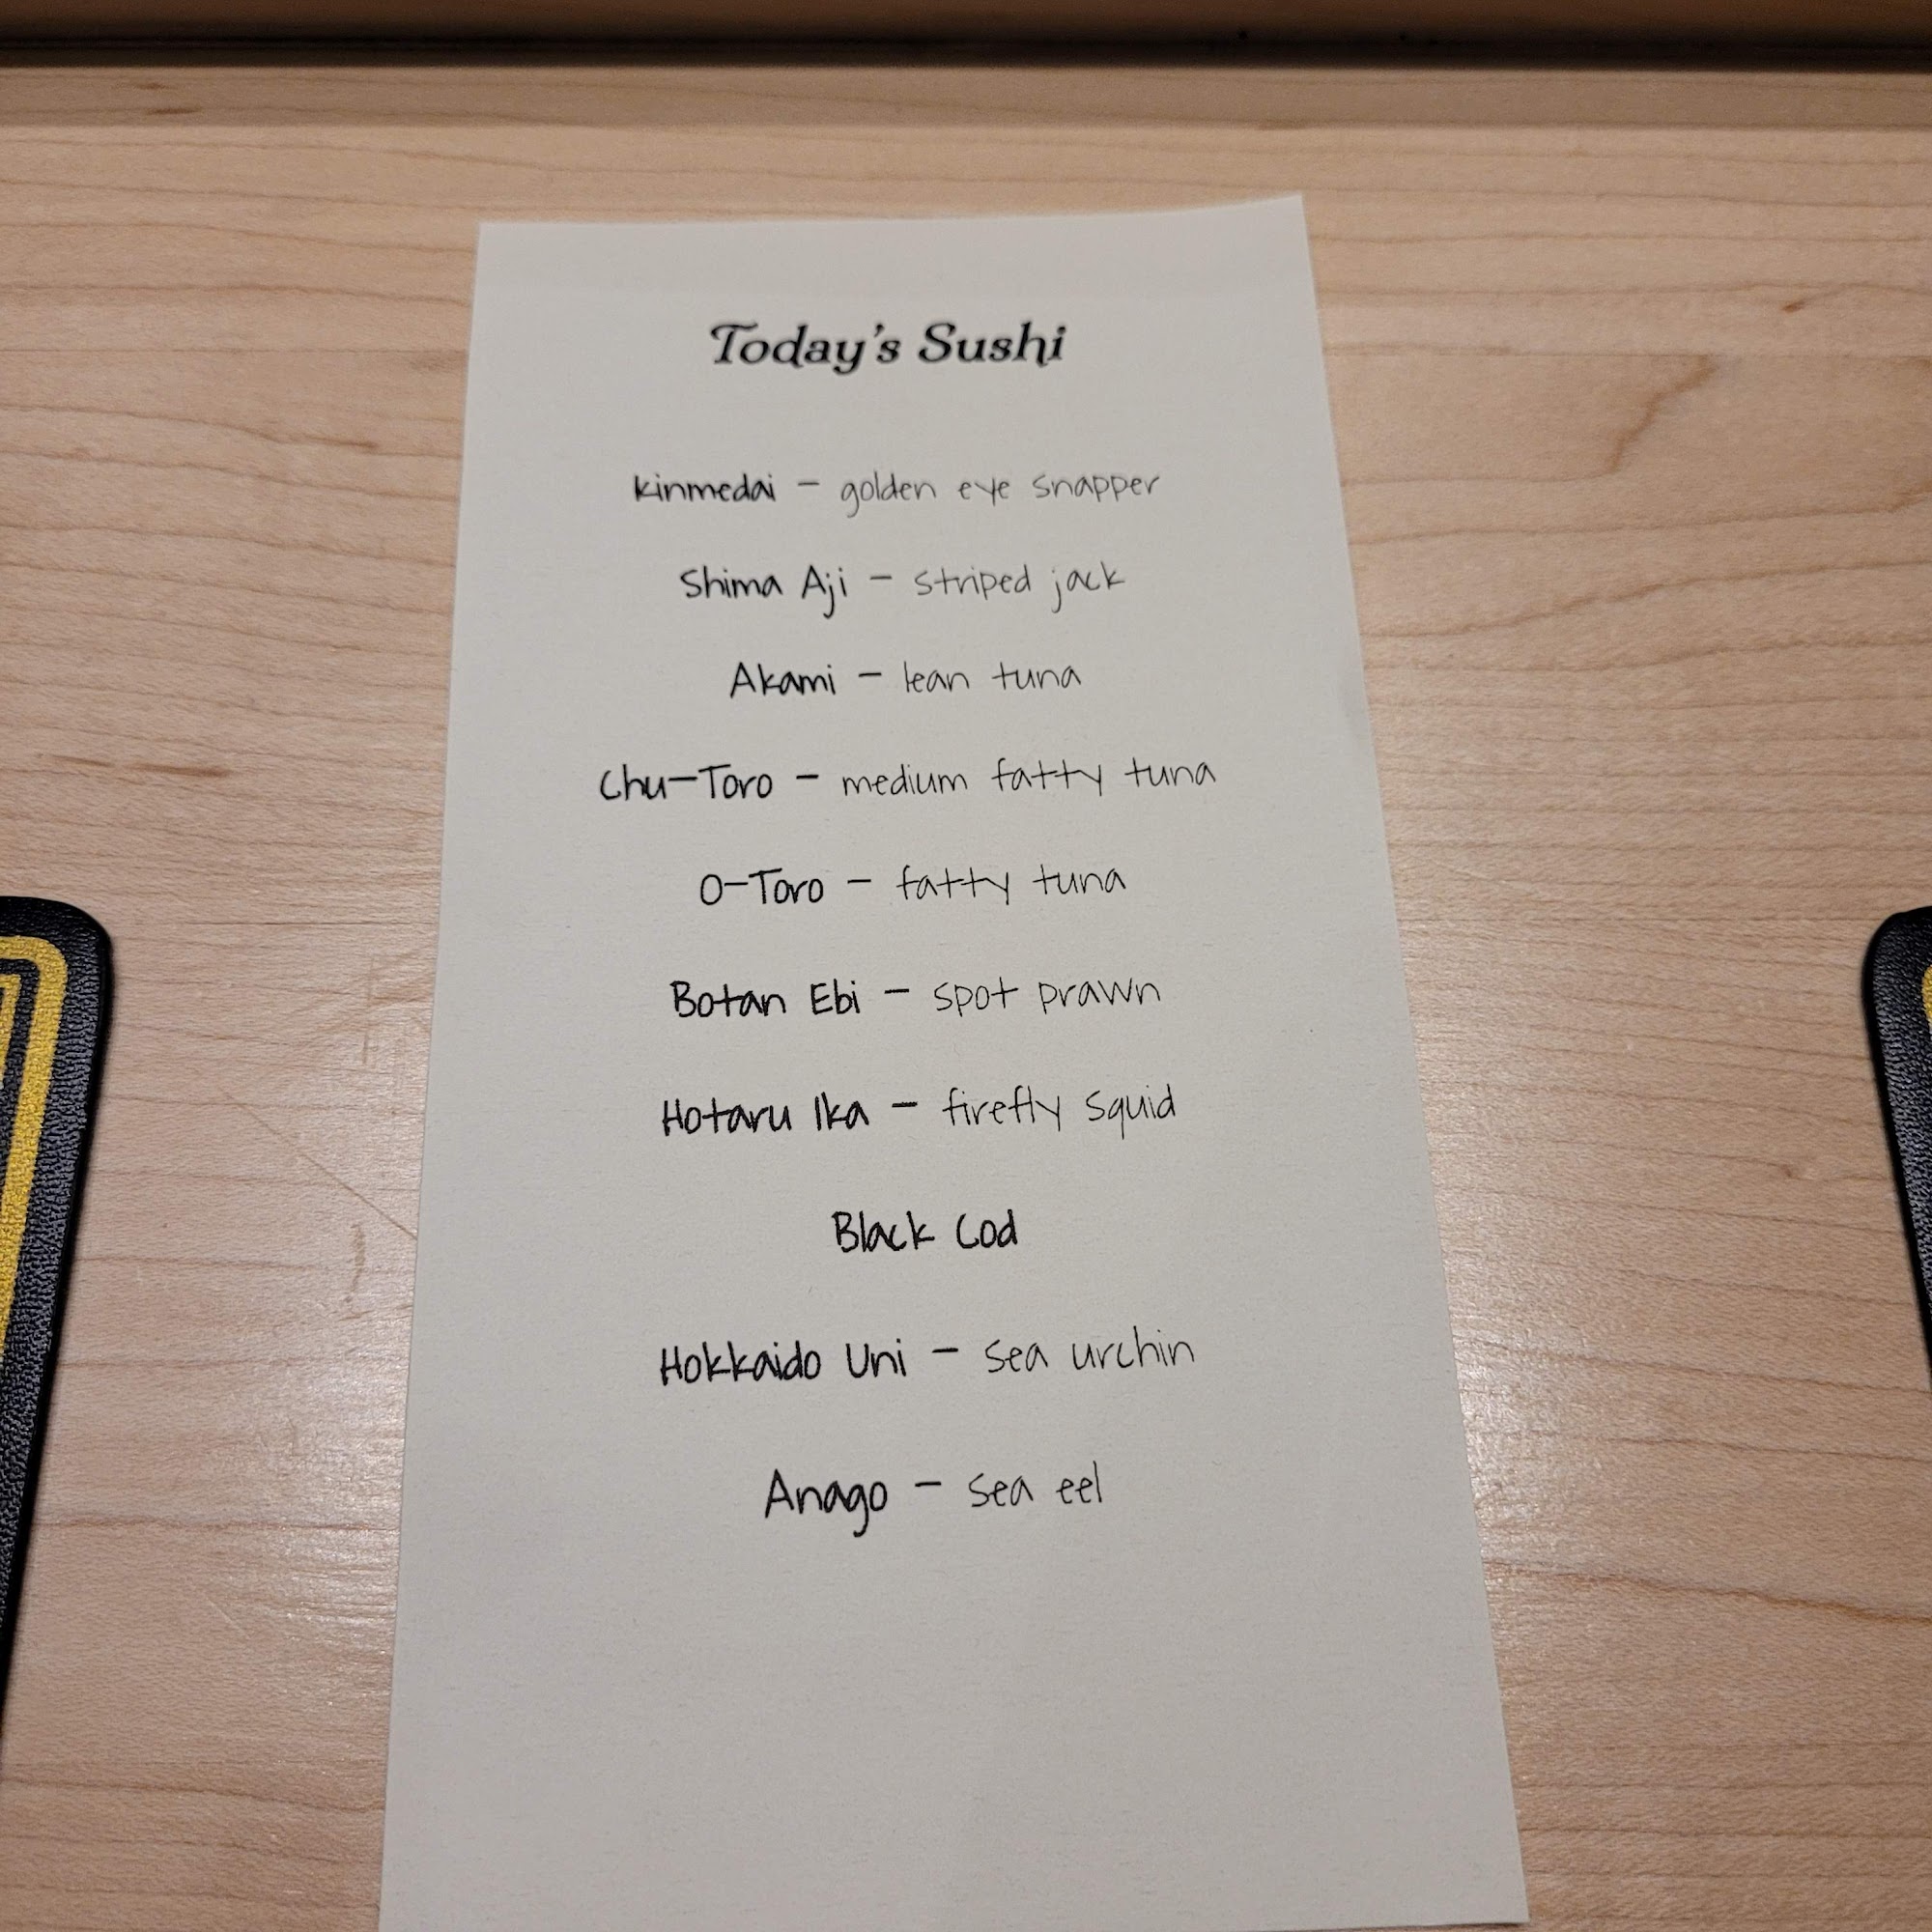 Today's Sushi
Kinmedai - golden eye snapper
Shima Aji - striped jack
Akami - lean tuna
Chu-Toro - medium fatty tuna
O-Toro - fatty tuna
Botan Ebi - spot prawn
Hotaru Ika - firefly squid
Black Cod
Hokkaido Uni - sea urchin
Anago - sea eel